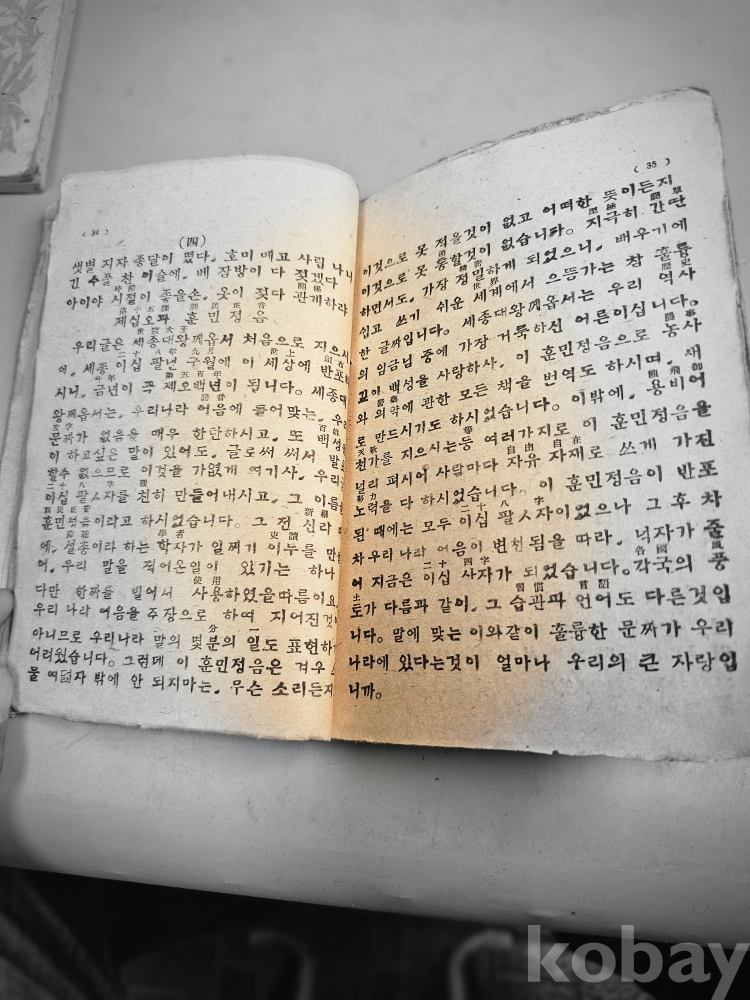 ( 34 )
(四)
샛별 지자 종달이 떴다. 호미 메고 사립 나니
긴 수풀 찬 이슬에, 베 잠방이 다 젖겠다
時節 關係
아이야 시절이 좋을손, 옷이 젖다 관계하랴
第十五課 訓民正音
제십오과 훈민정음
世宗大王
우리글은 세종대왕께옵서 처음으로 지으시
二十八年 九月 世上 頒布
어, 세종 이십 팔년 구월에 이 세상에 반포하
今年 第五百年
시니, 금년이 꼭 제오백년이 됩니다. 세종대
語音
왕께옵서는, 우리나라 어음에 들어 맞는,
文字 百姓
문짜가 없음을 매우 한탄하시고, 또 백성
이 하고싶은 말이 있어도, 글로써 써서 발표
할수 없으므로 이것을 가엾게 여기사, 우리
二十八字 親
이십 팔ㅅ자를 친히 만들어내시고, 그 이름을
訓民正音 新羅
훈민정음이라고 하시었습니다. 그 전 신라
薛聰 學者 吏讀
에, 설총이라 하는 학자가 일찌기 이두를 만들
어, 우리 말을 적어온일이 있기는 하나
使用
다만 한짜를 빌어서 사용하였을따름이요
우리 나라 어음을 주장으로 하여 지어진것
分 一
아니므로 우리나라 말의 몇분의 일도 표현하
어려웠습니다. 그런데 이 훈민정음은 겨우
물 여덟자 밖에 안 되지마는, 무슨 소리든지
( 35 )
이것으로 못 적을것이 없고 어떠한 뜻이든지
至極 簡單
이것으로 못 통할것이 없습니다. 지극히 간딴
精密
하면서도, 가장 정밀하게 되었으니, 배우기에
世界
쉽고 쓰기 쉬운 세계에서 으뜸가는 참 훌륭
歷史
한 글짜입니다. 세종대왕께옵서는 우리 역사
의 임금님 중에 가장 거룩하신 어른이십니다.
農事
고이 백성을 사랑하사, 이 훈민정음으로 농사
醫藥
와 의약에 관한 모든 책을 번역도 하시며, 새
龍飛御
로 만드시기도 하시었습니다. 이밖에, 용비어
天歌
천가를 지으시는등 여러가지로 이 훈민정음을
自由自在
널리 펴시어 사람마다 자유 자재로 쓰게 가진
努力
노력을 다 하시었습니다. 이 훈민정음이 반포
二十八字
된 때에는 모두 이십 팔ㅅ자이었으나 그 후 차
차 우리 나라 어음이 변천됨을 따라, 넉자가 줄
二十四字 各國 風
어 지금은 이십 사자가 되었습니다. 각국의 풍
土 習慣 言語
토가 다름과 같이, 그 습관과 언어도 다른것입
니다. 말에 맞는 이와같이 훌륭한 문짜가 우리
나라에 있다는것이 얼마나 우리의 큰 자랑입
니까.
kobay